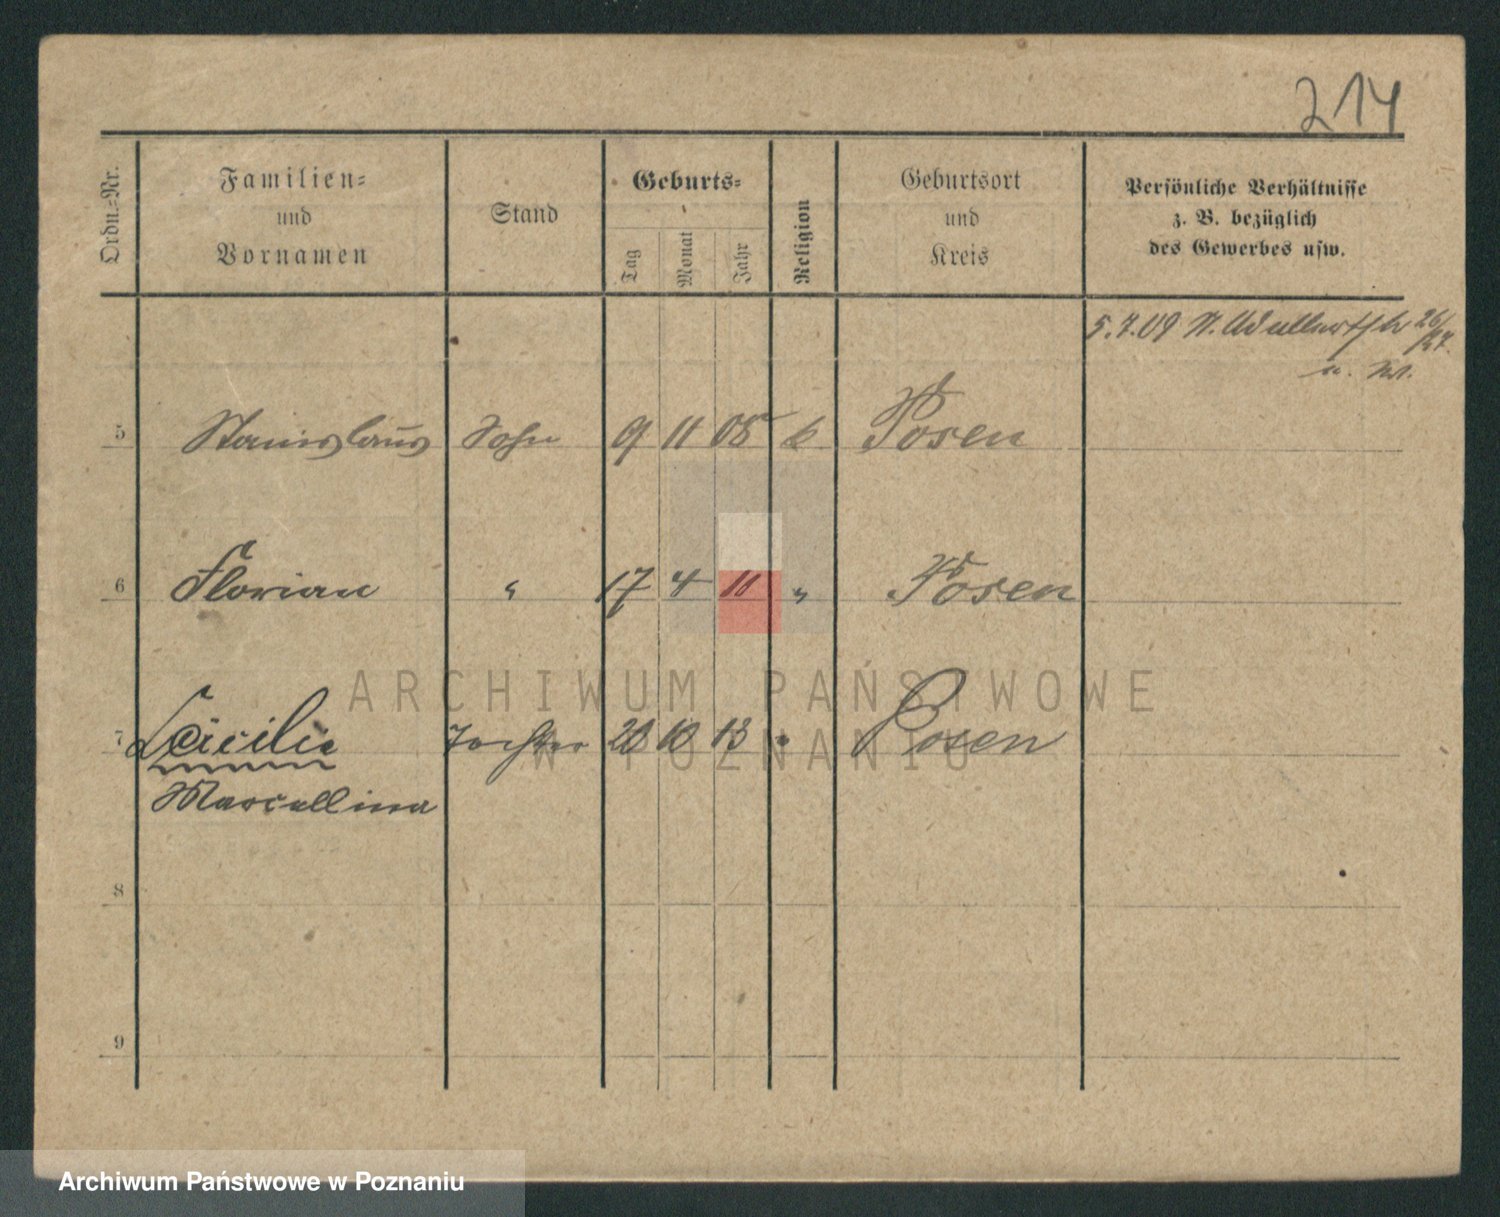 214
Ordn.-Nr.
Familien-
und
Vornamen
Stand
Geburts-
Tag
Monat
Jahr
Religion
Geburtsort
und
Kreis
Persönliche Verhältnisse
z. B. bezüglich
des Gewerbes usw.
5.7.09 26/27.
5 Stanislaus Sohn 9 11 08 k Posen
6 Florian " 17 4 11 " Posen
ARCHIWUM PAŃSTWOWE
7 Cäcilie Tochter 20 10 13 " Posen
W POZNANIU
Marcellina
8
9
Archiwum Państwowe w Poznaniu